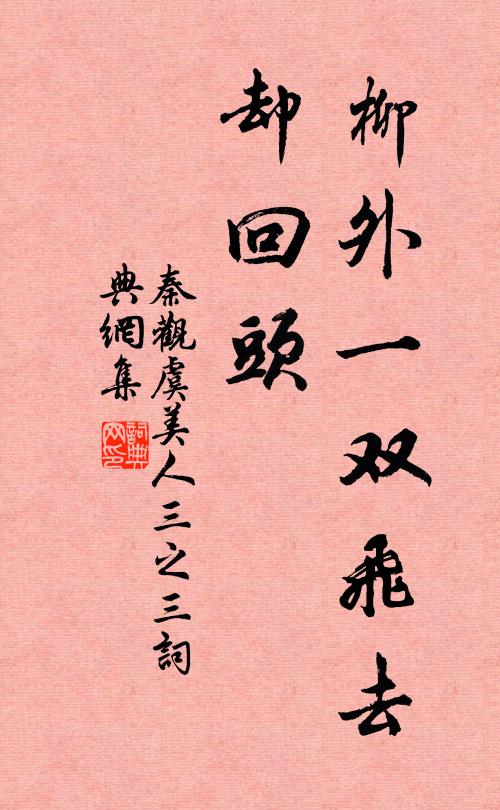 柳外一双飛去
却回頭
秦觀虞美人三之三詞
典網集
詞典
网印